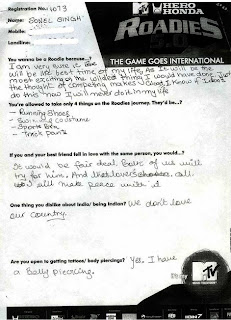 Registration No.: 1073
Name: SONEL SINGH
Mobile:
Landline:
MTV HERO HONDA
ROADIES
THE GAME GOES INTERNATIONAL
You wanna be a Roadie because...?
I am very sure it
will be the best time of my life, As it will be the
most exciting of the wildest thing I would have done. Just
the thought of competing makes I know if I don't
do this now I will never do it in my life
You're allowed to take only 4 things on the Roadies journey. They'd be...?
- Running Shoes
- Swimming costume
- Sports Bra
- Track Pants
If you and your best friend fall in love with the same person, you would...?
It would be fair deal. Both of us will
try for him. And call
will make peace with it
One thing you dislike about India/ being Indian? We don't love
our country.
Are you open to getting tattoos/ body piercings? Yes. I have
a Belly piercing.
MTV